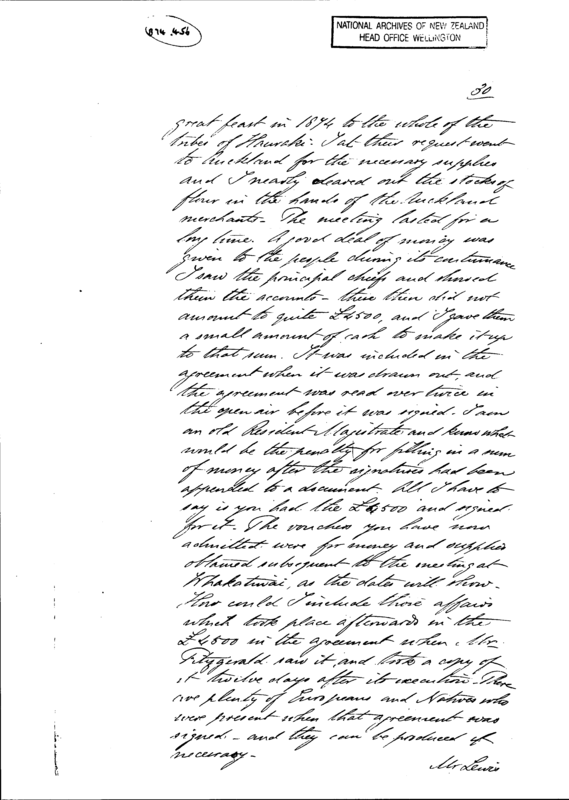 874.456
NATIONAL ARCHIVES OF NEW ZEALAND
HEAD OFFICE WELLINGTON
30
great feast in 1874 to the whole of the
tribes of Hauraki. I at their request went
to Auckland for the necessary supplies
and I nearly cleared out the stocks of
flour in the hands of the Auckland
merchants - The meeting lasted for a
long time. A good deal of money was
given to the people during its continuance
I saw the principal chiefs and showed
them the accounts - these then did not
amount to quite £4500, and I gave them
a small amount of cash to make it up
to that sum. It was included in the
agreement when it was drawn out, and
the agreement was read over twice in
the open air before it was signed. I am
an old Resident Magistrate and know what
would be the penalty for filling in a sum
of money after the signatures had been
appended to a document. All I have to
say is you had the £4500 and signed
for it. The vouchers you have now
admitted were for money and supplies
obtained subsequent to the meeting at
Whakatiwai, as the dates will show -
How could I include those affairs
which took place afterwards in the
£4500 in the agreement when Mr.
Fitzgerald saw it and took a copy of
it twelve days after its execution. There
are plenty of Europeans and Natives who
were present when that agreement was
signed - and they can be produced if
necessary -
Mr Lewis